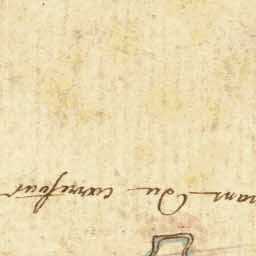 du carrefour